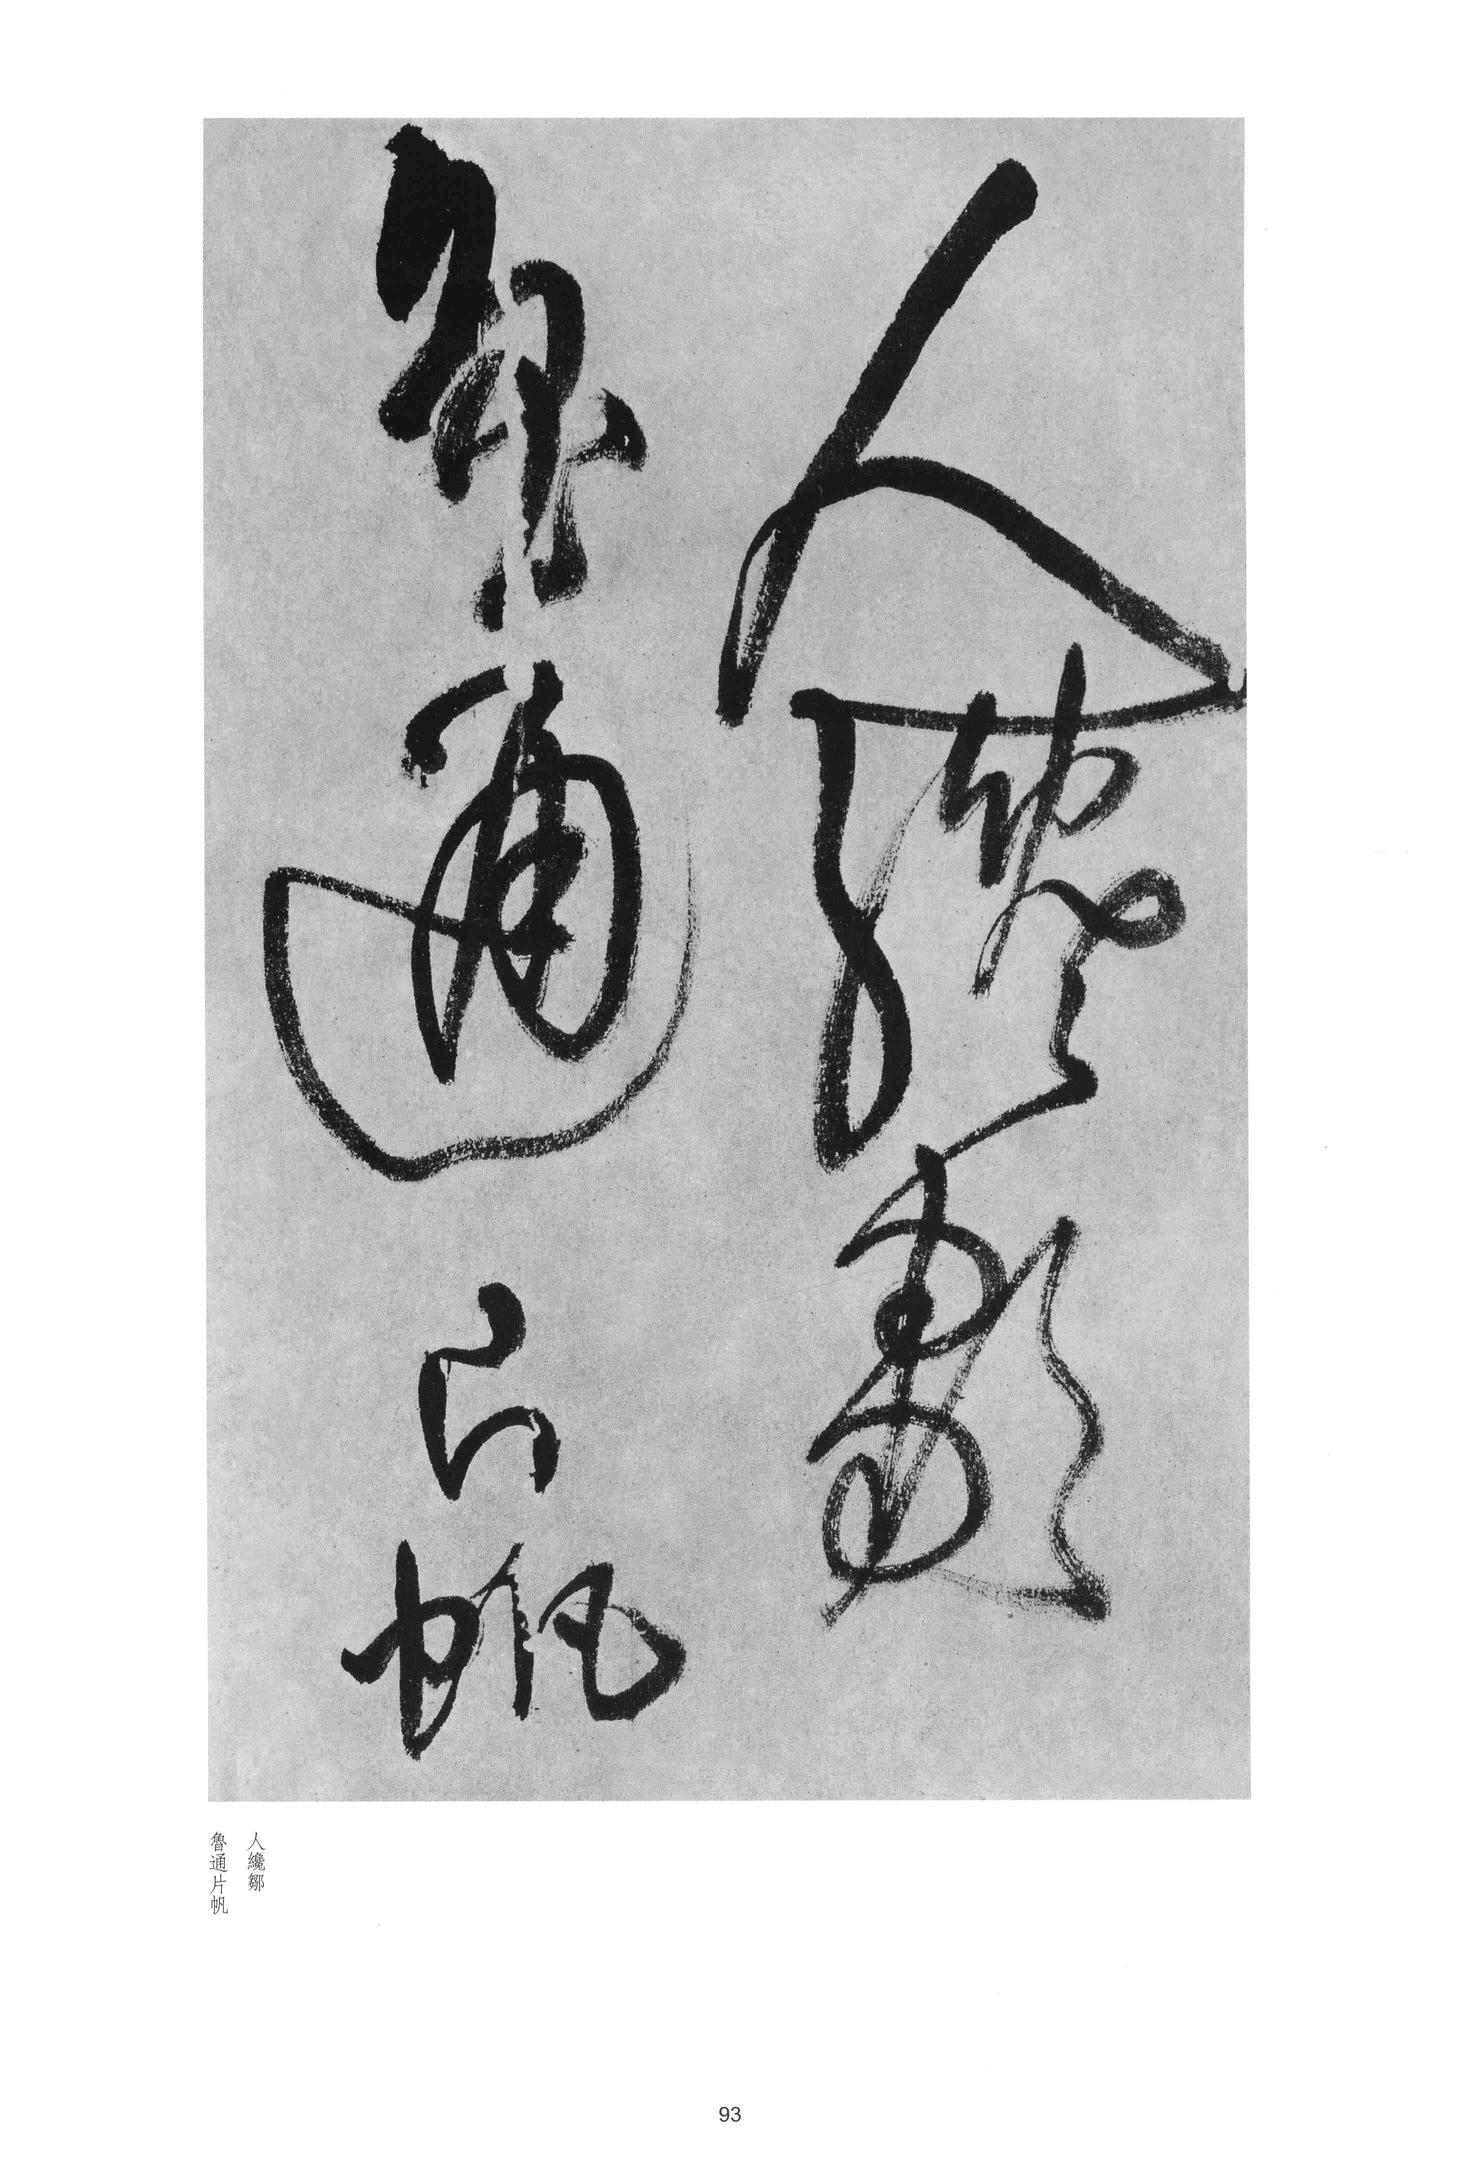 人纔鄒
魯通片帆
人纔鄒
魯通片帆
93